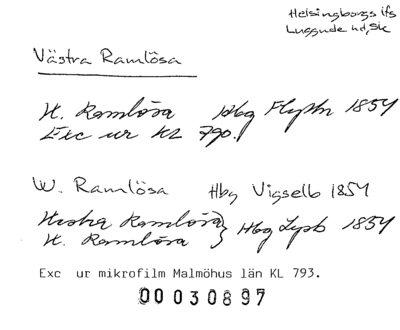 Helsingborgs lfs
Luggude hd, Sk
Västra Ramlösa
V. Ramlösa Hbg Flyttn 1854
Exc ur KL 790.
W. Ramlösa Hbg Vigselb 1854
Westra Ramlösa } Hbg Lysb 1854
V. Ramlösa
Exc ur mikrofilm Malmöhus län KL 793.
00030897